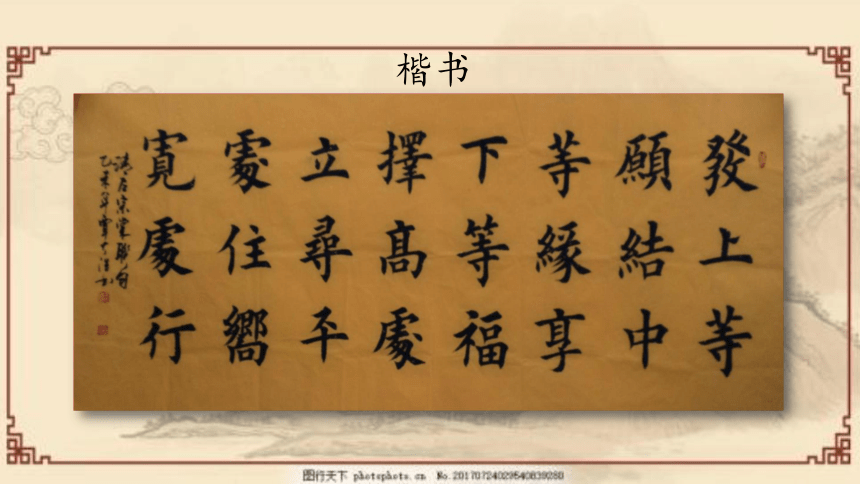 楷书
發上等
願結中
等緣享
下等福
擇高處
立尋平
處住嚮
寬處行
清左宗棠聯句
图行天下 photophoto.cn No.20170724029540839280